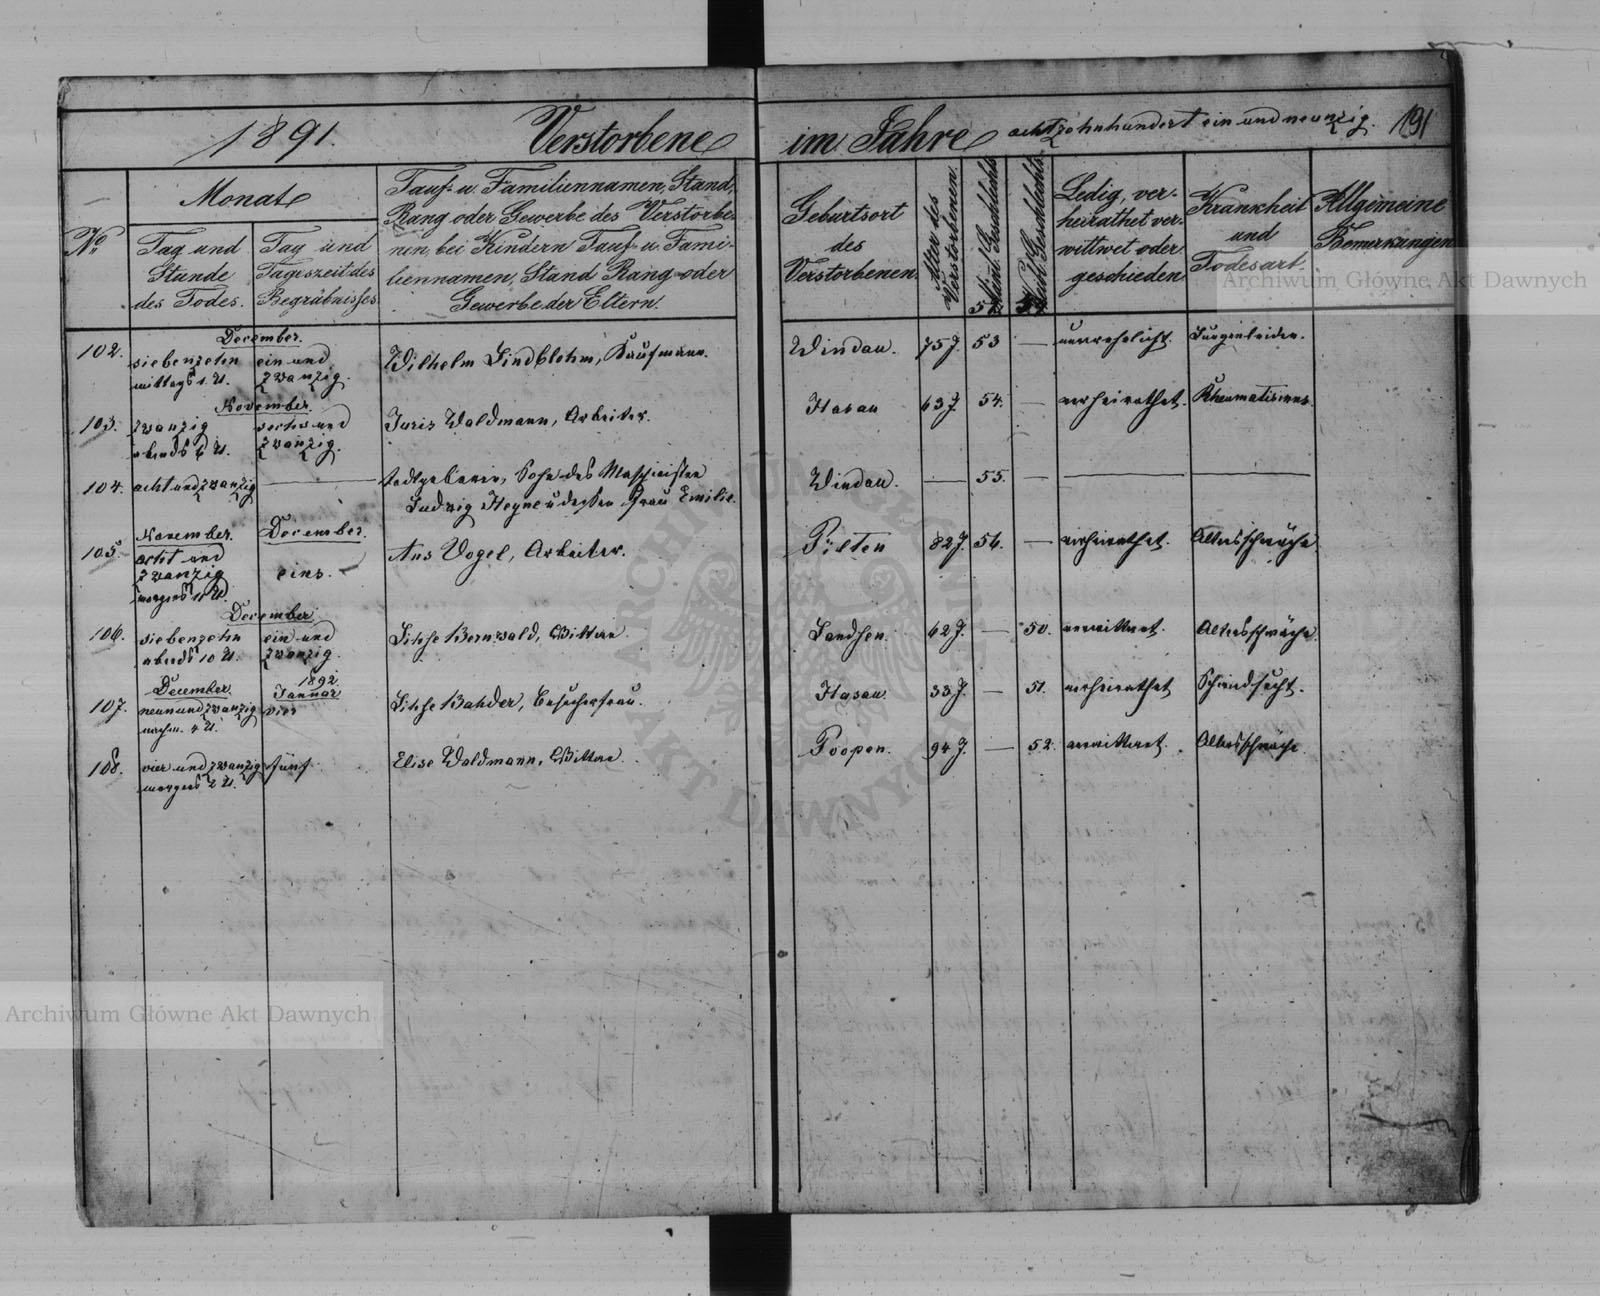 1891. Verstorbene im Jahre achtzehnhundert ein und neunzig. 191
No
Monat
Tag und Stunde des Todes.
Tag und Tageszeit des Begräbnisses
Tauf- u. Familiennamen, Stand,
Rang oder Gewerbe des Verstorbe-
nen, bei Kindern Tauf- u. Fami-
liennamen, Stand Rang oder
Gewerbe der Eltern.
Geburtsort
des
Verstorbenen.
Alter des Verstorbenen.
Männl. Geschlechts
Weibl. Geschlechts.
Ledig, ver-
heirathet ver-
wittwet oder
geschieden
Krankheit
und
Todesart.
Allgemeine
Bemerkungen
December.
102. siebenzehn ein und Wilhelm Lindblohm, Kaufmann. Windau. 75 J. 53 — unverehelicht. Lungenleiden.
mittags 1 U. zwanzig.
November.
103. zwanzig sechs und Juris Waldmann, Arbeiter. Hasau 63 J. 54. — verheirathet. Rheumatismus.
abends 6 U. zwanzig.
104. acht und zwanzig — todtgeboren, Sohn des Maschinisten Windau. — 55. — — —
Ludwig Heyne u dessen Frau Emilie.
November. December.
105. acht und Ans Vogel, Arbeiter. Pilten 82 J. 56. — verheirathet. Altersschwäche
zwanzig eins.
morgens 11 U.
December
106. siebenzehn ein und Lihse Bernwald, Wittwe. Landsen. 62 J. — 50. verwittwet. Altersschwäche
abends 10 U. zwanzig.
1892.
December. Januar
107. neun und zwanzig vier Lihse Bahder, Besucherfrau. Hasau. 33 J. — 51. verheirathet Schwindsucht.
nachm. 4 U.
108. vier und zwanzig fünf Elise Waldmann, Wittwe. Poopen. 94 J. — 52. verwittwet. Altersschwäche
morgens 2 U.
Archiwum Główne Akt Dawnych
Archiwum Główne Akt Dawnych
ARCHIWUM GŁÓWNE AKT DAWNYCH